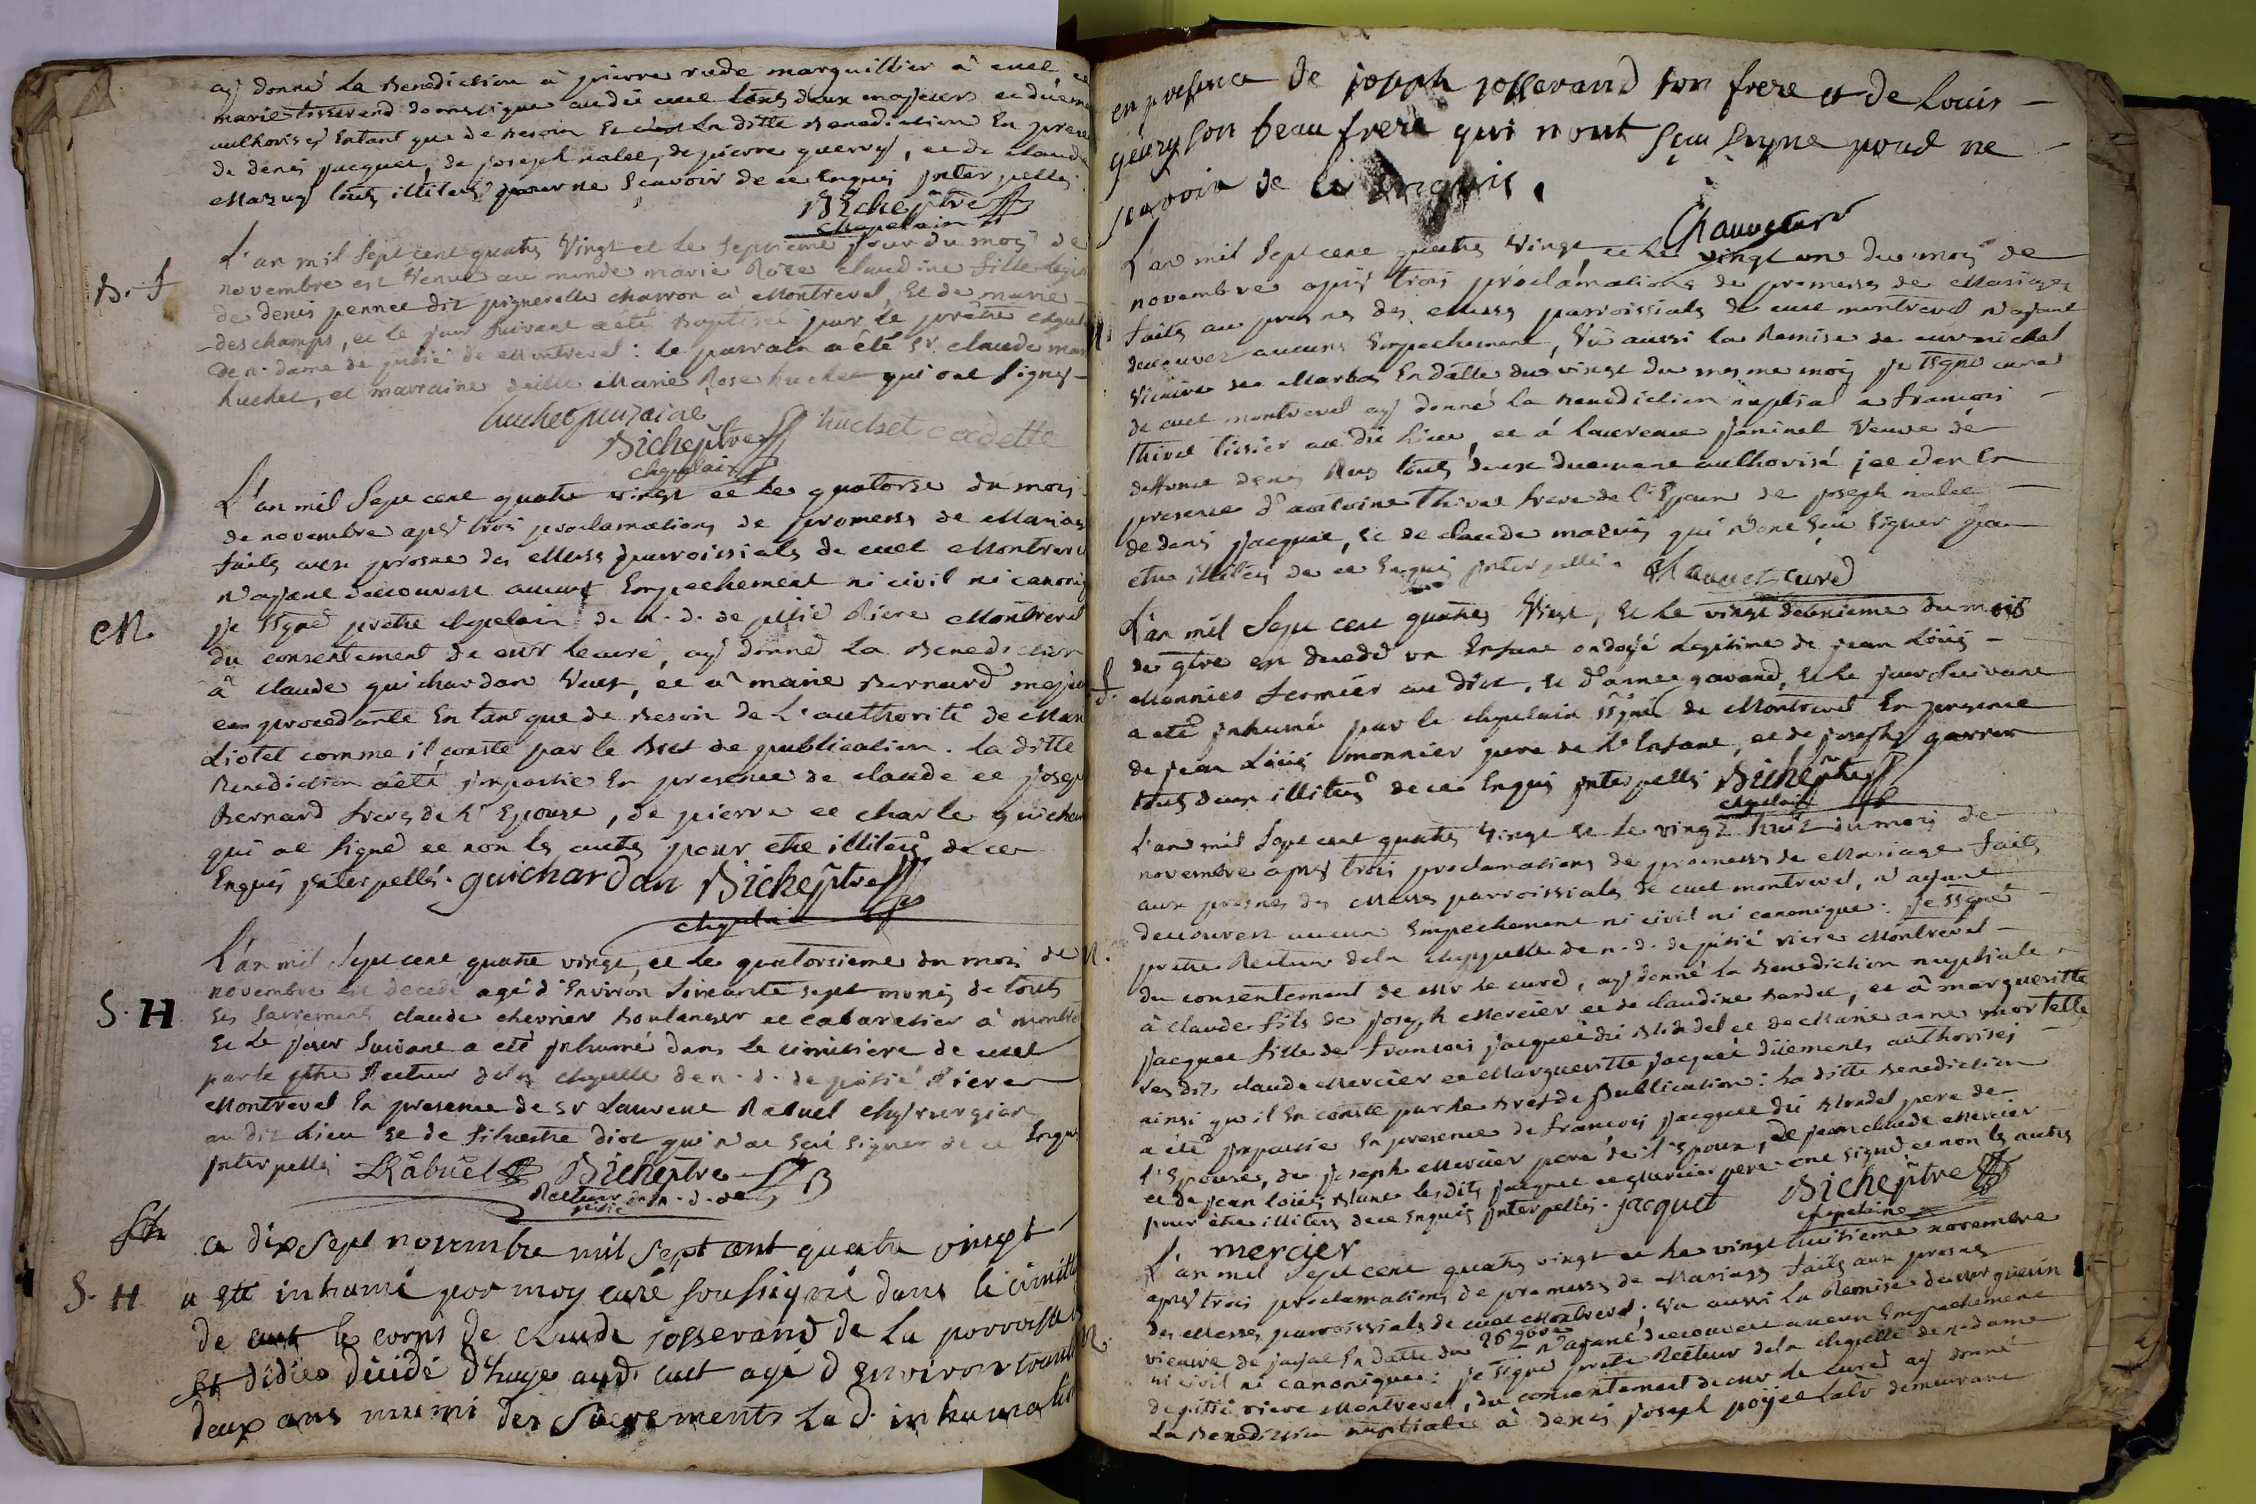 ay donné la Benediction à pierre rude marguillier à cuet, et
marie tisserand domestique audit cuet touts deux majeurs et duem
authorisés Entant que de Besoin Et la ditte Benediction En prese
de denis jacquet, de joseph nalet, de pierre guerry, et de claude
Mazuy touts illiterés pour ne sçavoir de ce Enquis jnterpellés.
Bichet ptre
chapelain
B. f
L'an mil sept cent quatre Vingt et le septieme jour du mois de
novembre est Venue au monde marie Roze claudine fille legit
de denis pennet dit pignerolle charron à Montrevel, Et de marie
deschamps, et le jour suivant a eté Baptisée par le prêtre chapel
de n. dame de pitié de Montrevel : le parrain a été sr. claude mar
huchet, et marraine dlle Marie Rose huchet qui ont signés
huchet huchet cadette
Bichet ptre
chapelain
M.
L'an mil Sept cent quatre vingt et le quatorse du mois
de novembre aprés trois proclamations de promesses de Mariag
faites aux prosne des Messes parroissiales de cuet Montrevel
n'ayant decouvert aucuns Empechement ni civil ni canoniq
je ssigné pretre chapelain de n. d. de pitié Riere Montrevel
du consentement de mr le curé, ay donné la Benediction
à claude guichardan Veuf, et à marie Bernard majeu
en procedante En tant que de Besoin de l'authorité de Mar
Liotet comme il conste par le Bret de publication. la ditte
Benediction a été jmpartie En presence de claude et josep
Bernard freres de l'Epouse, de pierre et charle guichar
qui ont signé et non les autres pour etre illiterés de ce
Enquis jnterpellés. guichardan Bichet ptre
chapelain
S. H
L'an mil Sept cent quatre vingt, et le quatorsieme du mois de
novembre est decedé agé d'Environ soixante sept munis de touts
ses sacrements claude chevrier Boulanger et cabaretier à montre
Et le jour suivant a eté jnhumé dans le cimitiere de cuet
par le ptre Recteur de la chapelle de n. d. de pitié Riere
Montrevel En presence de sr Laurent Rabuel chyrurgien
au dit Lieu Et de silvestre diot qui n'a sçû signer de ce Enquis
jnterpellé LRabüel Bichet ptre
Recteur de n. d. de
pitié
S. H
ce dix sept novembre mil sept cent quatre vingt
a eté inhumé par moy curé soussigné dans le cimitie
de cuet le corps de claude josserand de la parroisse
st didier décidé d'huyer aud. cuet agé d'environ trante
deux ans muni des sacrements la d. inhumation
en presence de joseph josserand son frere et de louis
geury son beau frere qui n'ont sçu signe pour ne
scavoir de ce enquis.
Chauvet curé
L'an mil Sept cent quatre Vingt, et le vingt une du mois de
novembre aprés trois proclamations de promesses de Mariages
faites au prosnes des Messes parroissiales de cuet montrevel n'ayant
decouvert aucuns Empechement, Vû aussi la Remise de mr michel
Vicaire de Marboz En datte du vingt du mesme mois je ssigné curé
de cuet montrevel ay donné la Benediction nuptial a francois
thivet tissier au dit lieu, et à laurence janinet Veuve de
deffunct denis Rus touts deux duement authorisé jce dar En
presence d'antoine thivet frere de l'Epoux de joseph nalet
de denis jacquet, Et de claude mazuis qui n'ont sçu signer pour
etre illiterés de ce Enquis jnterpellés. Chauvet curé
L'an mil Sept cent quatre Vingt, Et le vingt deuxieme du mois
de 9bre est decedé un Enfant ondoyé Legitime de jean Loüis
Monnier fermier au diot, Et d'aimée gavand, Et le jour suivant
a eté jnhumé par le chapelain ssigné de Montrevel En presence
de jean Loüis monnier pere de l'Enfant, et de joseph
touts deux illiterés de ce Enquis jnterpellés Bichet ptre
chapelain
L'an mil Sept cent quatre Vingt Et le vingt huit du mois de
novembre aprés trois proclamations de promesses de Mariage faites
aux prosnes des Messes parroissiales de cuet montrevel, n'ayant
decouvert aucun Empechement ni civil ni canonique : je ssigné
pretre Recteur de la chappelle de n. d. de pitié riere Montrevel
du consentement de Mr le curé, ay donné la Benediction nuptiale
à claude fils de joseph Mercier et de claudine Bardet, et à margueritte
jacquet fille de francois jacquet dit Blondel et de Marie anne mortelle
les dits claude Mercier et Margueritte jacquet düements authorisés
ainsi qu'il En conste par le Bret de Publication : la ditte Benediction
a été jmpartie En presence de francois jacquet dit Blondel pere de
l'Epouse, de joseph Mercier pere de l'Epoux, de jean claude Mercier
et de jean loüis Blanc lesdits jacquet et Mercier pere ont signé et non les autres
pour etre illiterés de ce Enquis jnterpellés. jacquet Bichet ptre
chapelain
mercier
L'an mil Sept cent quatre vingt et le vingt huitieme novembre
aprés trois proclamations de promesses de Mariages faites aux prosnes
des Messes parroissiales de cuet Montrevel, vu aussi la Remise de mr guerin
vicaire de jayat En datte du 26 9bre n'ayant decouvert aucun Empechement
ni civil ni canonique : je ssigné pretre Recteur de la chapelle de n. dame
de pitié riere Montrevel, du consentement de mr le curé ay donné
la Benediction nuptiale à denis joseph poyet labr demeurant